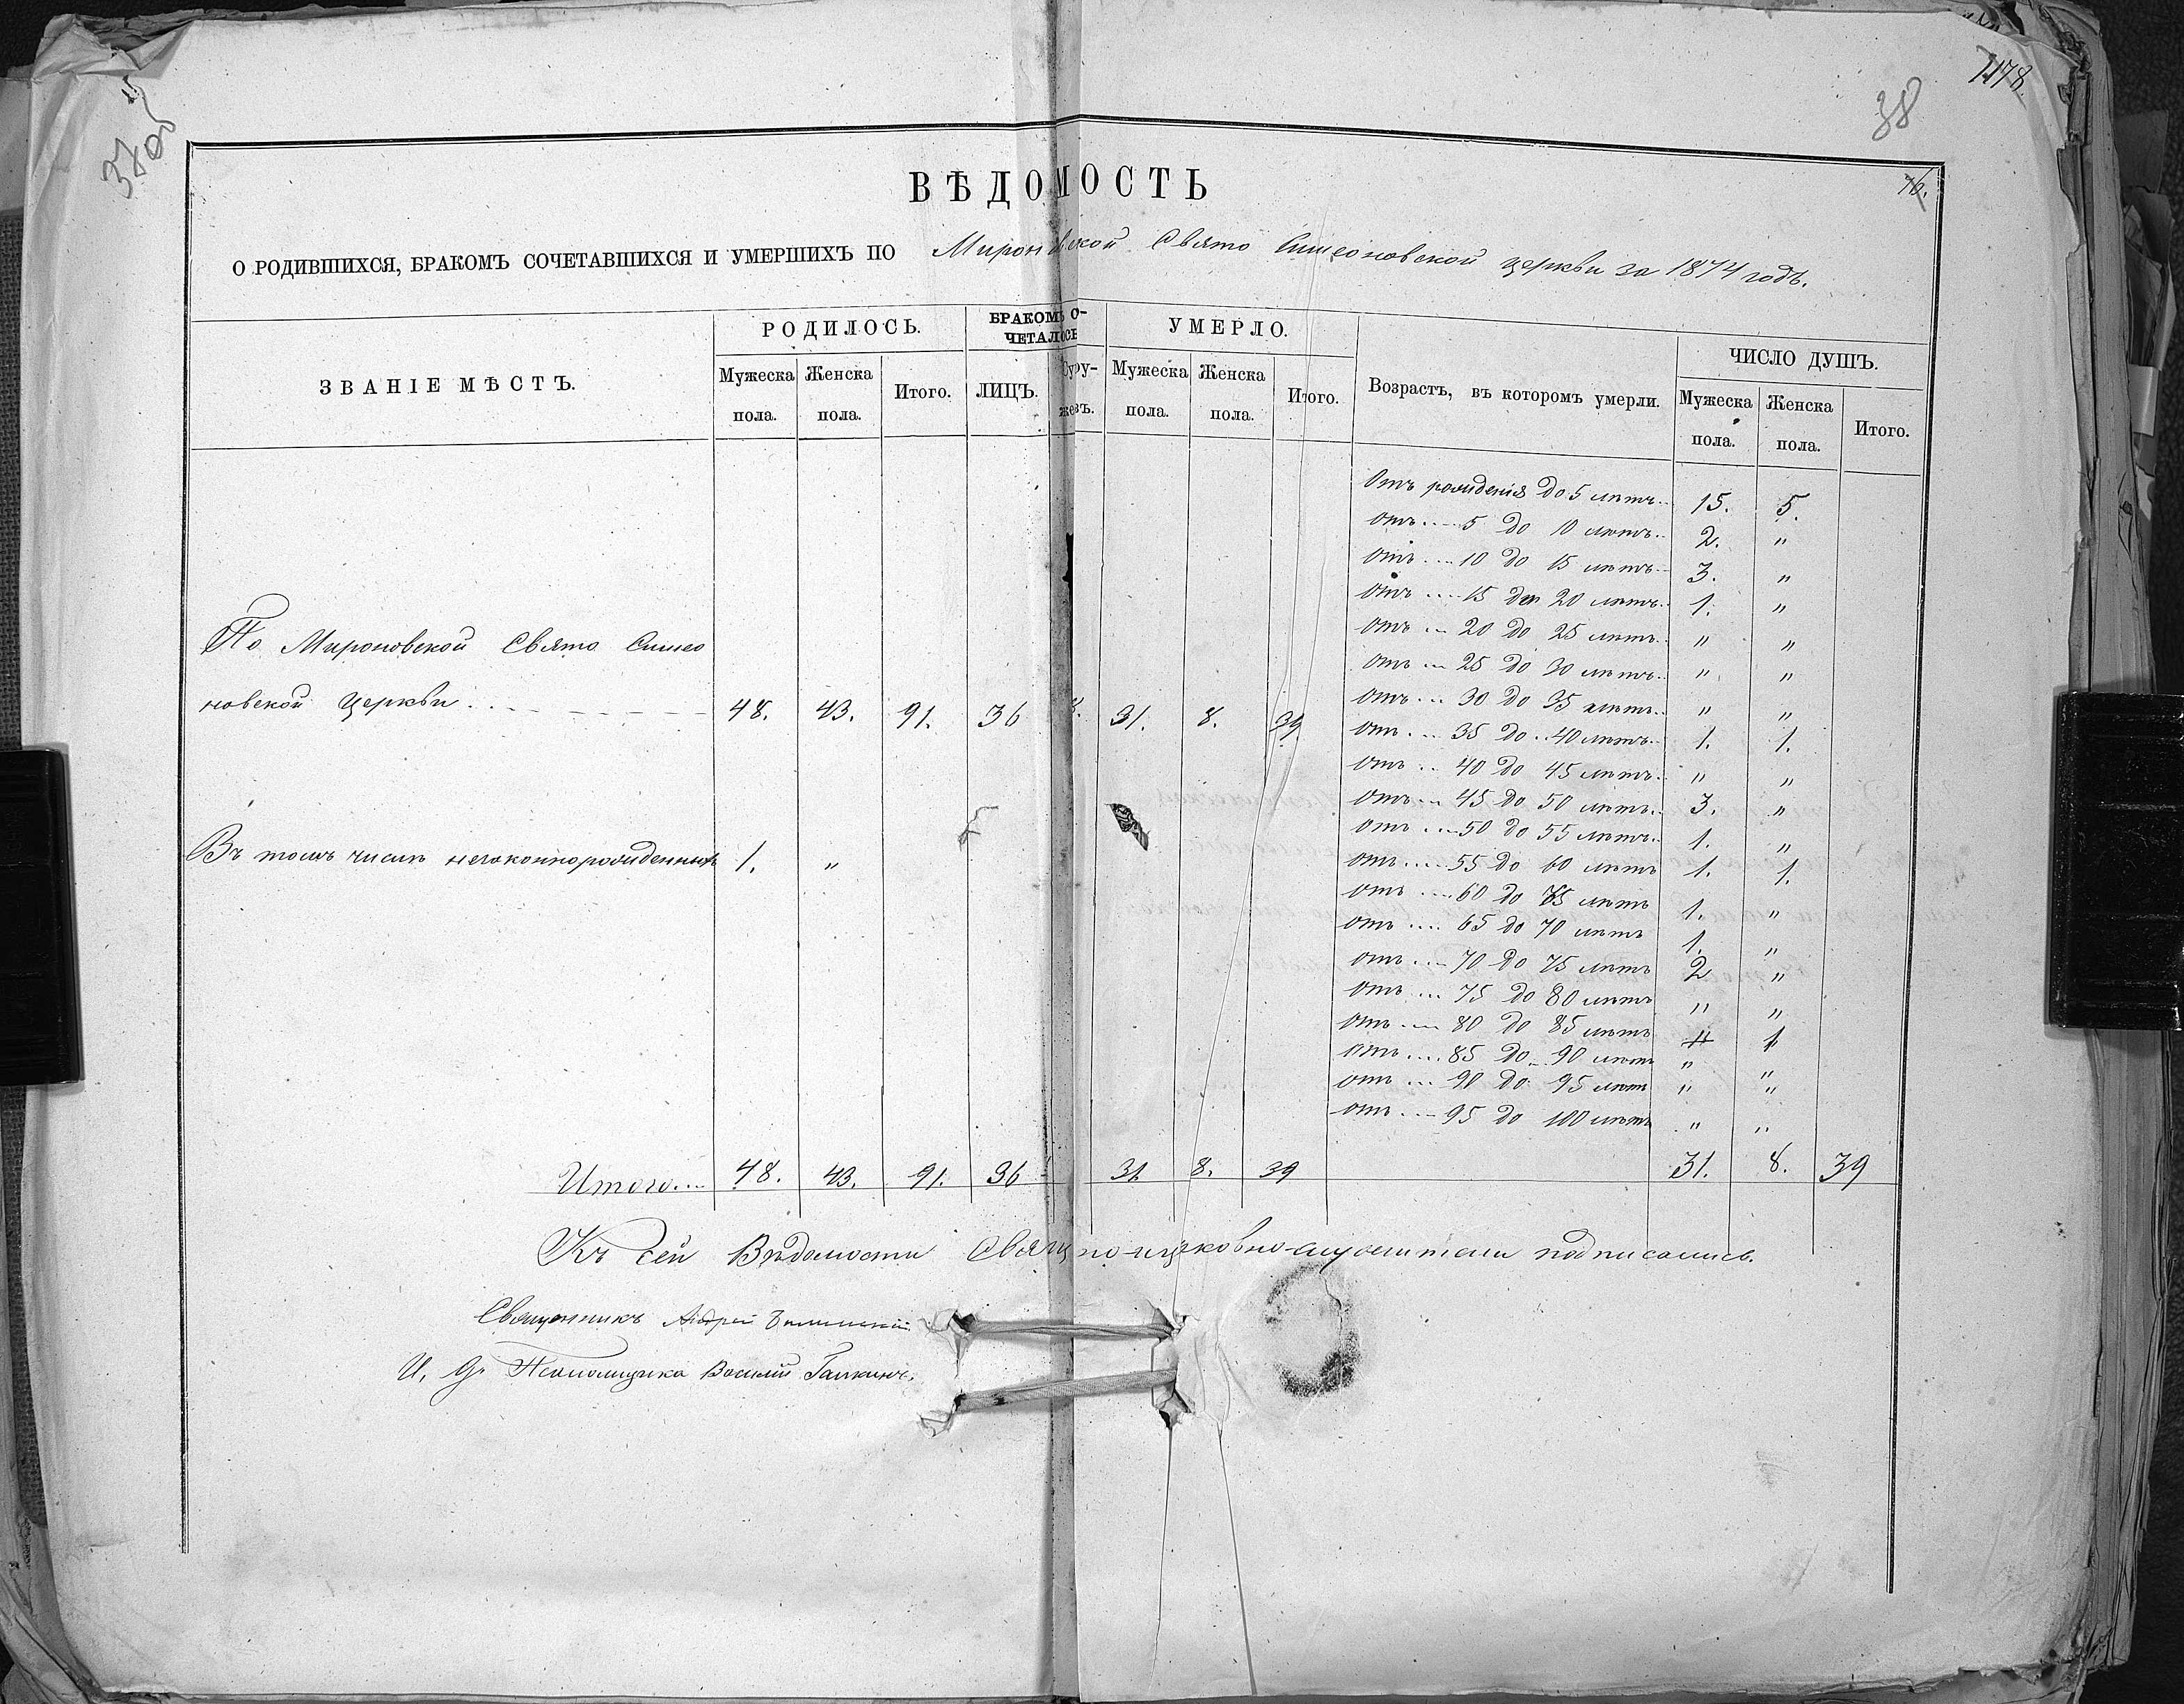 1178.
38
37об
76.
ВѢДОМОСТЬ
О РОДИВШИХСЯ, БРАКОМЪ СОЧЕТАВШИХСЯ И УМЕРШИХЪ ПО Мироновской Свято Симеоновской церкви за 1874 годъ.
ЗВАНІЕ МѢСТЪ. РОДИЛОСЬ. БРАКОМЪ СО- УМЕРЛО. Возрастъ, въ которомъ умерли. ЧИСЛО ДУШЪ.
ЧЕТАЛОСЬ
Мужеска пола. Женска пола. Итого. ЛИЦЪ. Супру-жевъ. Мужеска пола. Женска пола. Итого. Мужеска пола. Женска пола. Итого.
По Мироновской Свято Симео
новской Церкви . . 48. 43. 91. 36 8. 31. 8. 39.
Въ томъ числѣ незаконнорожденныхъ 1. "
Отъ рожденія до 5 лѣтъ.. 15. 5.
отъ .... 5 до 10 лѣтъ.. 2. "
отъ .... 10 до 15 лѣтъ.. 3. "
отъ .... 15 до 20 лѣтъ.. 1. "
отъ ... 20 до 25 лѣтъ.. " "
отъ ... 25 до 30 лѣтъ.. " "
отъ ... 30 до 35 лѣтъ.. " "
отъ ... 35 до .. 40 лѣтъ.. 1. 1.
отъ .. 40 до 45 лѣтъ.. " "
отъ ... 45 до 50 лѣтъ.. 3. "
отъ ... 50 до 55 лѣтъ.. 1. "
отъ .... 55 до 60 лѣтъ 1. 1.
отъ .... 60 до 65 лѣтъ 1. "
отъ .... 65 до 70 лѣтъ 1. "
отъ .... 70 до 75 лѣтъ 2 "
отъ ... 75 до 80 лѣтъ " "
отъ ... 80 до 85 лѣтъ " 1
отъ .... 85 до .. 90 лѣтъ " "
отъ ... 90 до 95 лѣтъ " "
отъ ... 95 до 100 лѣтъ " "
Итого.... 48. 43. 91. 36 31. 8. 39 31. 8. 39
Къ сей Вѣдомости Священно-церковно-служители подписались.
Священникъ Андрей
И. д. Псаломщика Василій Галкинъ.